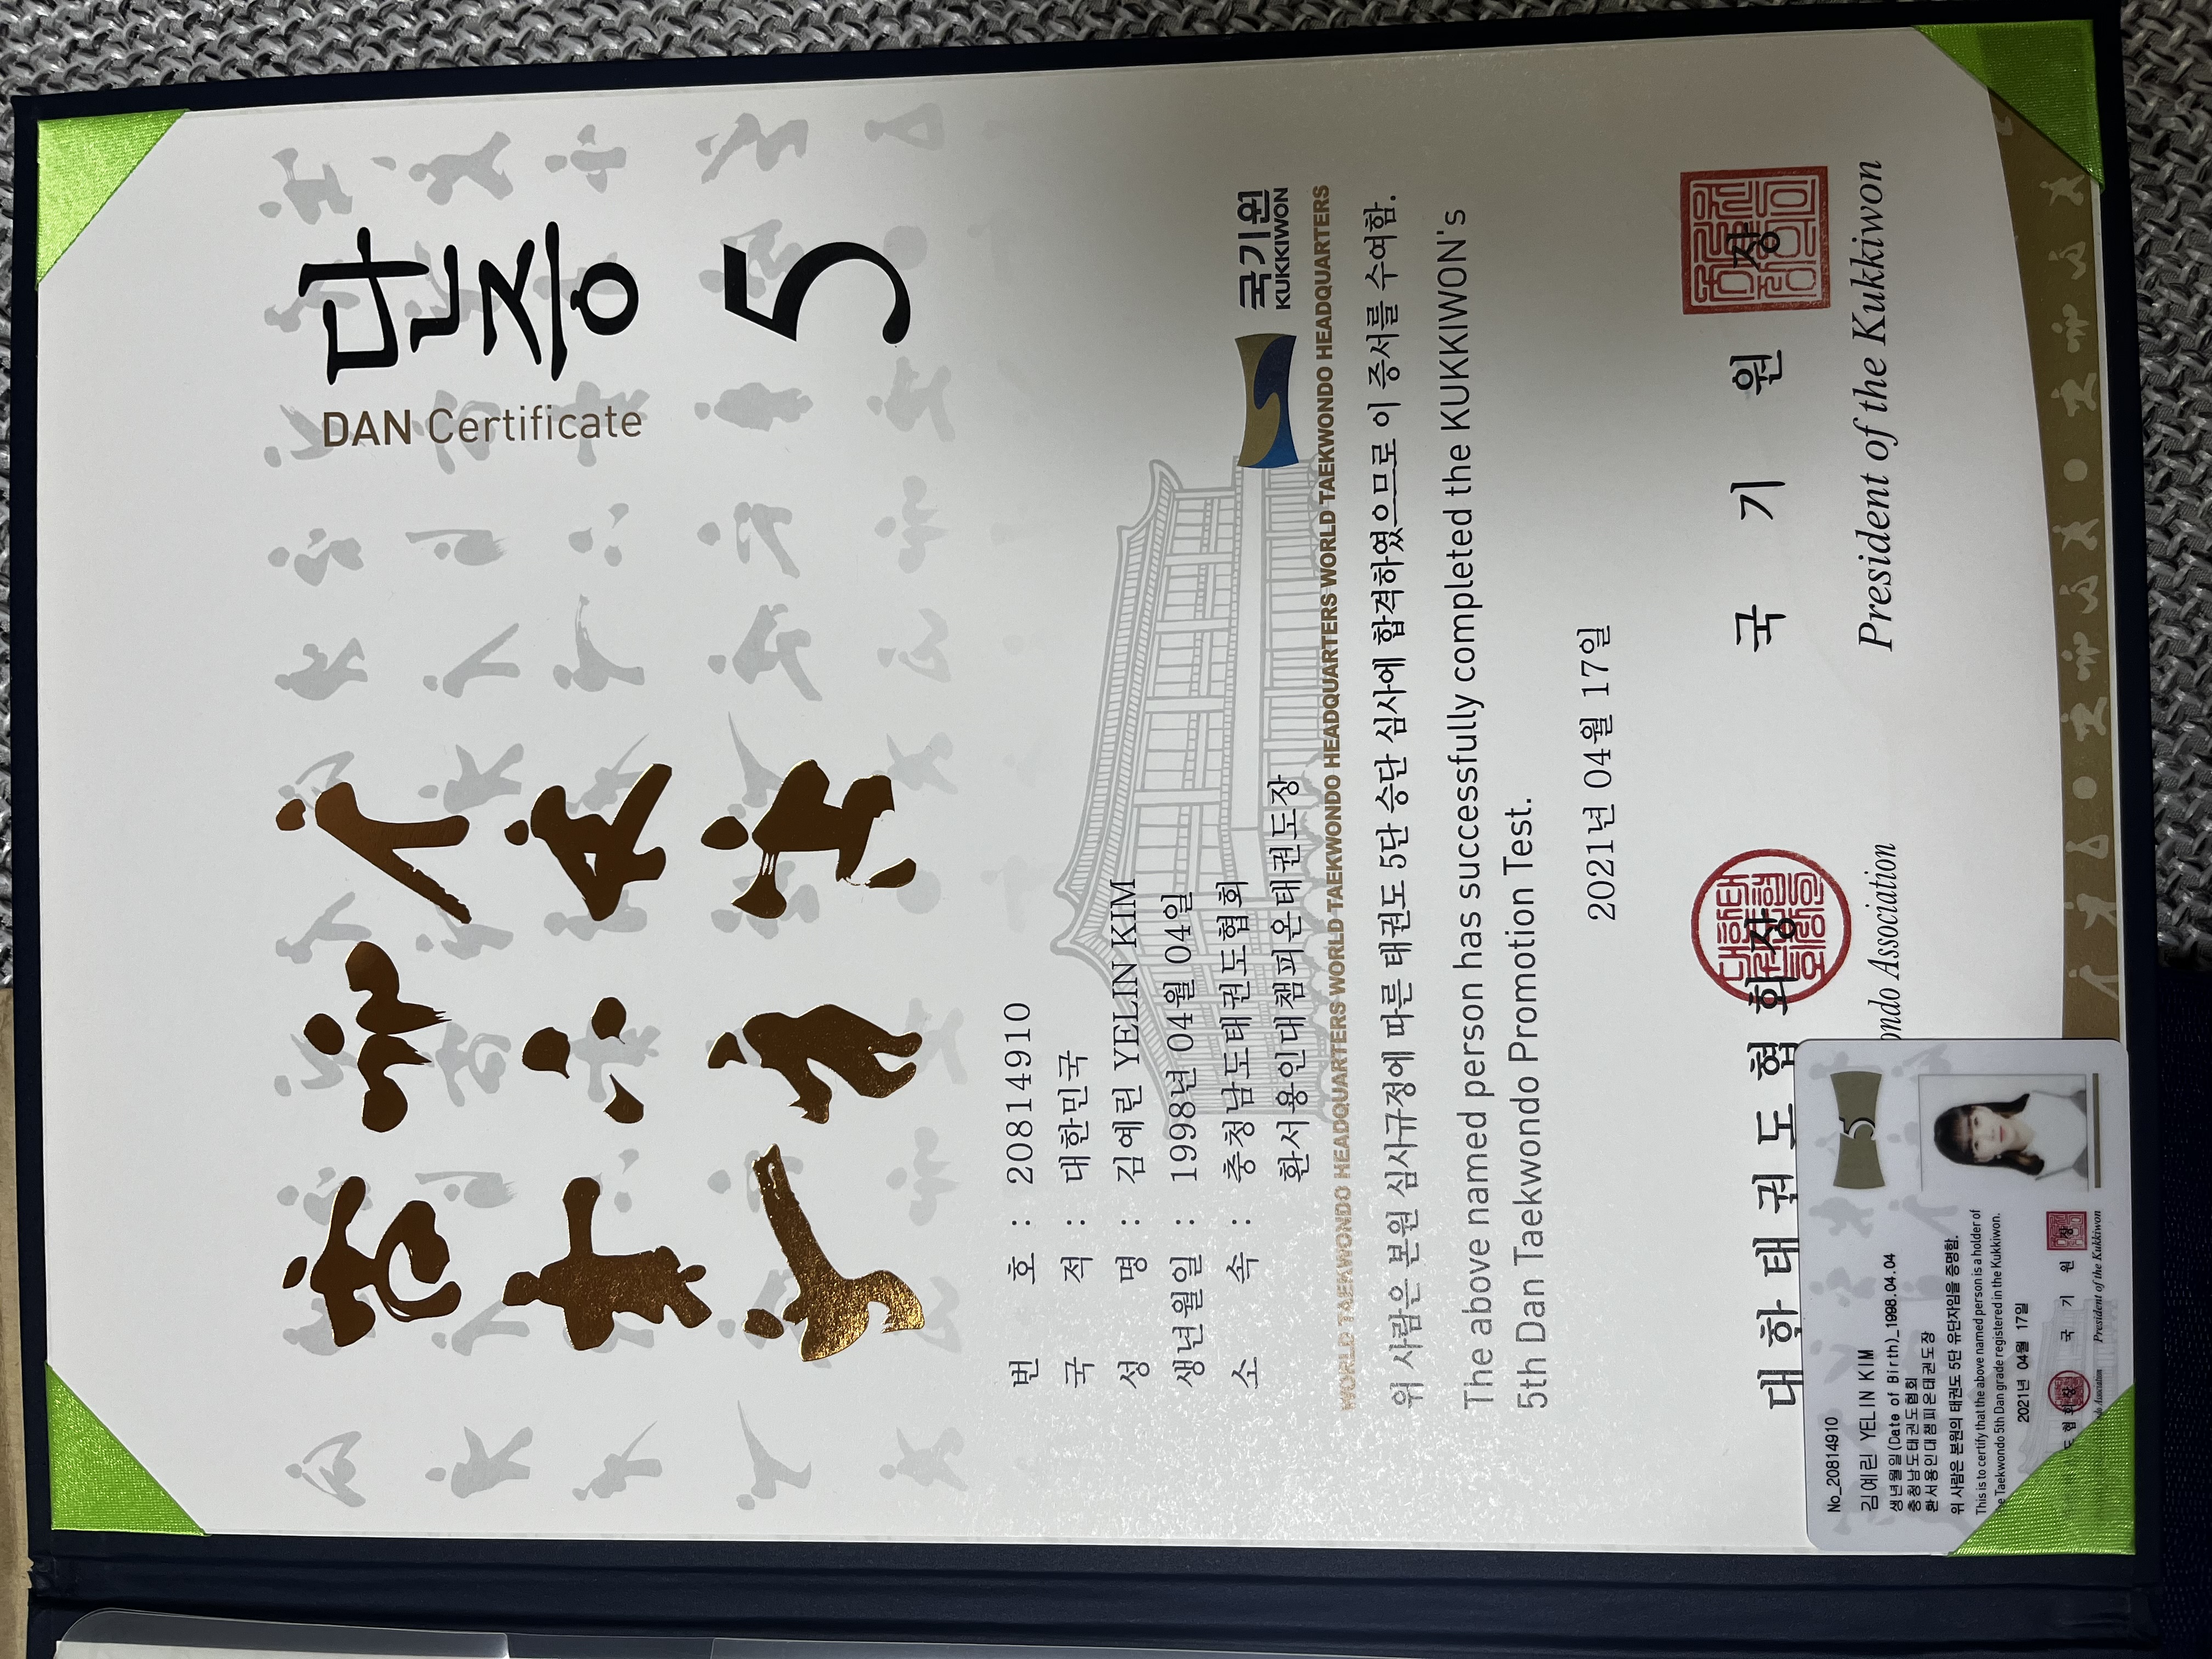 단증
DAN Certificate
5
번 호 : 20814910
국 적 : 대한민국
성 명 : 김예린 YELIN KIM
생년월일 : 1998년 04월 04일
소 속 : 충청남도태권도협회
환서용인대챔피온태권도장
국기원
KUKKIWON
WORLD TAEKWONDO HEADQUARTERS WORLD TAEKWONDO HEADQUARTERS WORLD TAEKWONDO HEADQUARTERS WORLD TAEKWONDO HEADQUARTERS
위 사람은 본원 심사규정에 따른 태권도 5단 승단 심사에 합격하였으므로 이 증서를 수여함.
The above named person has successfully completed the KUKKIWON's
5th Dan Taekwondo Promotion Test.
2021년 04월 17일
대한태권도협회장
국기원장
ondo Association
President of the Kukkiwon
5
No_20814910
김예린 YELIN KIM
생년월일(Date of Birth)_1998.04.04
충청남도태권도협회
환서용인대챔피온태권도장
위 사람은 본원의 태권도 5단 유단자임을 증명함.
This is to certify that the above named person is a holder of
e Taekwondo 5th Dan grade registered in the Kukkiwon.
2021년 04월 17일
도협회장
국기원장
do Association
President of the Kukkiwon